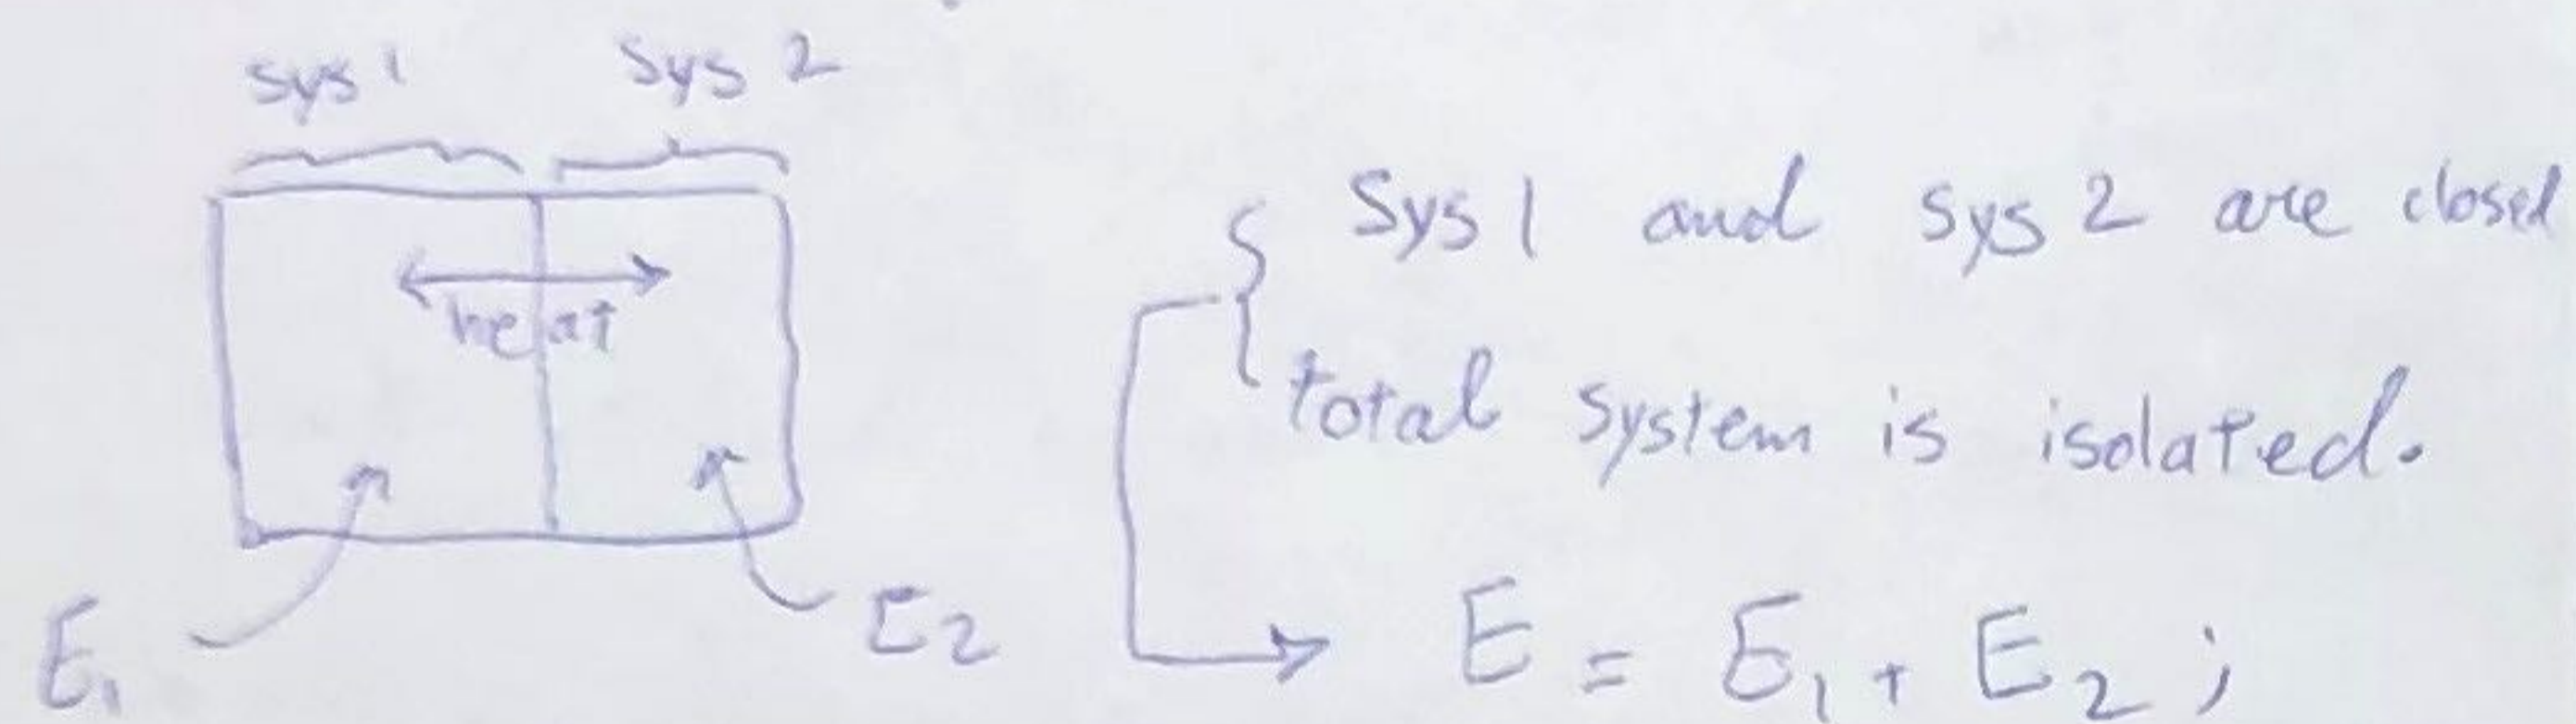 sys 1 sys 2
heat
E₁
E₂
Sys 1 and sys 2 are closed
total system is isolated.
E = E₁ + E₂ ;